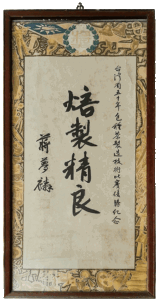 台灣省五十年包種茶製造技術比賽優勝紀念
焙製精良
蔣夢麟